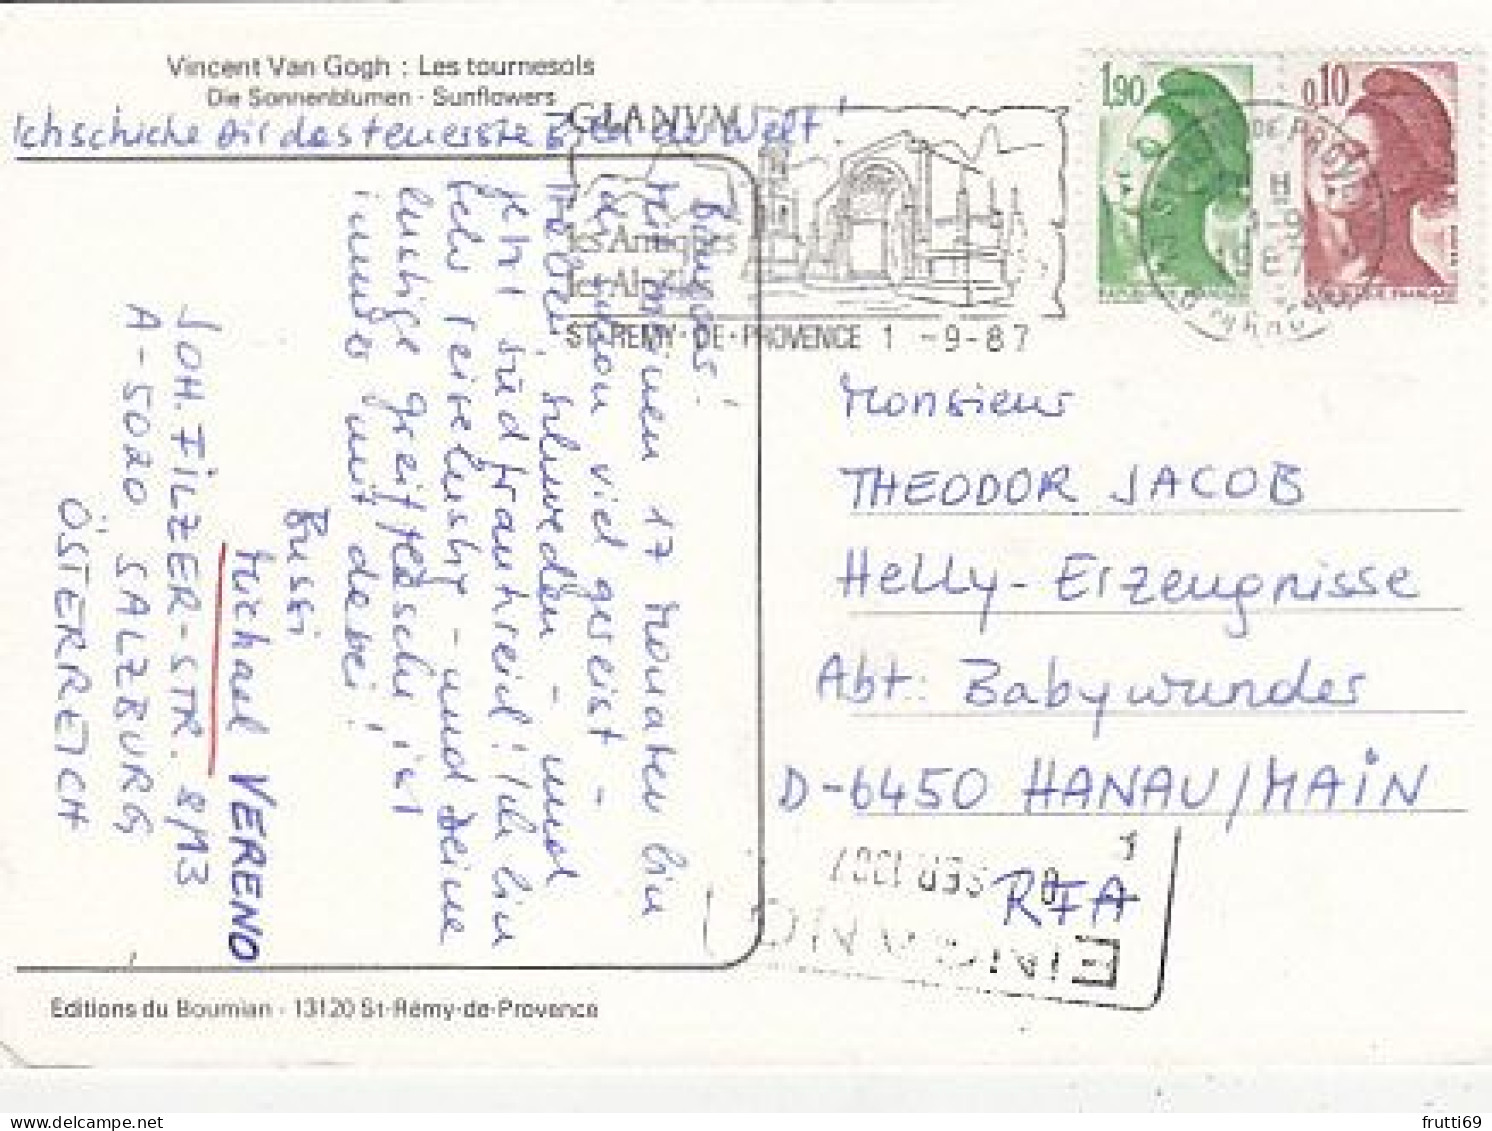 Vincent Van Gogh : Les tournesols
Die Sonnenblumen - Sunflowers
Ich schicke dir das teuerste Bild der Welt!
GLANVM
les Antiques
les Alpilles
ST REMY-DE-PROVENCE 1 -9-87
1,90
0,10
REPUBLIQUE FRANÇAISE
DE PROVENCE
Bonjour!
Mit meinen 17 Monaten bin
ich schon viel gereist -
Italien, Schweden - und
jetzt Südfrankreich! Ich bin
sehr reiselustig - und Deine
lustige Greiftasche ist
immer mit dabei!
Bussi
Michael VERENO
JOH. FILZER-STR. 8/13
A-5020 SALZBURG
ÖSTERREICH
Monsieur
THEODOR JACOB
Helly-Erzeugnisse
Abt: Babywunder
D-6450 HANAU/MAIN
RFA
EINGANG
SEP. 1987
Editions du Boumian - 13120 St-Rémy-de-Provence
frutti69